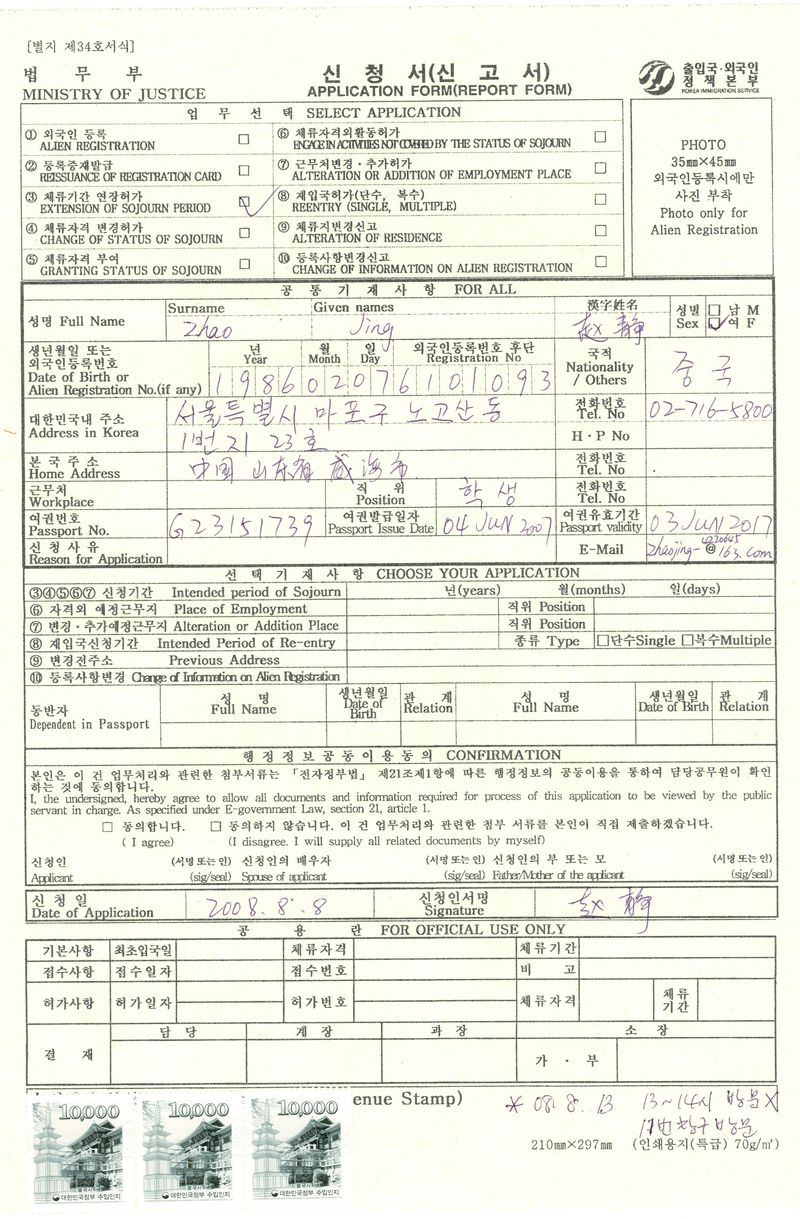 [별지 제34호서식]
법 무 부
MINISTRY OF JUSTICE
신 청 서(신 고 서)
APPLICATION FORM(REPORT FORM)
출입국·외국인
정 책 본 부
KOREA IMMIGRATION SERVICE
업 무 선 택 SELECT APPLICATION
① 외국인 등록
ALIEN REGISTRATION
⑥ 체류자격외활동허가
ENGAGE IN ACTIVITIES NOT COVERED BY THE STATUS OF SOJOURN
② 등록증재발급
REISSUANCE OF REGISTRATION CARD
⑦ 근무처변경·추가허가
ALTERATION OR ADDITION OF EMPLOYMENT PLACE
③ 체류기간 연장허가
EXTENSION OF SOJOURN PERIOD
⑧ 재입국허가(단수, 복수)
REENTRY (SINGLE, MULTIPLE)
④ 체류자격 변경허가
CHANGE OF STATUS OF SOJOURN
⑨ 체류지변경신고
ALTERATION OF RESIDENCE
⑤ 체류자격 부여
GRANTING STATUS OF SOJOURN
⑩ 등록사항변경신고
CHANGE OF INFORMATION ON ALIEN REGISTRATION
PHOTO
35㎜×45㎜
외국인등록시에만
사진 부착
Photo only for
Alien Registration
공 통 기 재 사 항 FOR ALL
성명 Full Name
Surname
Zhao
Given names
Jing
漢字姓名
赵 静
성별
Sex
남 M
여 F
생년월일 또는
외국인등록번호
Date of Birth or
Alien Registration No.(if any)
년 월 일 외국인등록번호 후단
Year Month Day Registration No
1 9 8 6 0 2 0 7 6 1 0 1 0 9 3
국적
Nationality
/ Others
중 국
대한민국내 주소
Address in Korea
서울특별시 마포구 노고산동
1번지 23호
전화번호
Tel. No
02-716-5800
H·P No
본 국 주 소
Home Address
中国 山东省 威海市
전화번호
Tel. No
근무처
Workplace
직 위
Position
학 생
전화번호
Tel. No
여권번호
Passport No.
G23151739
여권발급일자
Passport Issue Date
04 JUN 2007
여권유효기간
Passport validity
03 JUN 2017
신 청 사 유
Reason for Application
E-Mail
zhaojing-@163.com
선 택 기 재 사 항 CHOOSE YOUR APPLICATION
③④⑤⑥⑦ 신청기간 Intended period of Sojourn
년(years) 월(months) 일(days)
⑥ 자격외 예정근무지 Place of Employment
직위 Position
⑦ 변경·추가예정근무지 Alteration or Addition Place
직위 Position
⑧ 재입국신청기간 Intended Period of Re-entry
종류 Type
단수Single 복수Multiple
⑨ 변경전주소 Previous Address
⑩ 등록사항변경 Change of Information on Alien Registration
동반자
Dependent in Passport
성 명
Full Name
생년월일
Date of
Birth
관 계
Relation
성 명
Full Name
생년월일
Date of Birth
관 계
Relation
행 정 정 보 공 동 이 용 동 의 CONFIRMATION
본인은 이 건 업무처리와 관련한 첨부서류는 「전자정부법」 제21조제1항에 따른 행정정보의 공동이용을 통하여 담당공무원이 확인
하는 것에 동의합니다.
I, the undersigned, hereby agree to allow all documents and information required for process of this application to be viewed by the public
servant in charge. As specified under E-government Law, section 21, article 1.
□ 동의합니다. □ 동의하지 않습니다. 이 건 업무처리와 관련한 첨부 서류를 본인이 직접 제출하겠습니다.
( I agree) (I disagree. I will supply all related documents by myself)
신청인 (서명 또는 인) 신청인의 배우자 (서명 또는 인) 신청인의 부 또는 모 (서명 또는 인)
Applicant (sig/seal) Spouse of applicant (sig/seal) Father/Mother of the applicant (sig/seal)
신 청 일
Date of Application
2008. 8. 8
신청인서명
Signature
赵 静
공 용 란 FOR OFFICIAL USE ONLY
기본사항 최초입국일 체류자격 체류기간
접수사항 접수일자 접수번호 비 고
허가사항 허가일자 허가번호 체류자격 체류
기간
결 재
담 당 계 장 과 장 소 장
가 · 부
enue Stamp)
* 08. 8. 13 13~14시 방문
17번 창구 방문
210㎜×297㎜ (인쇄용지(특급) 70g/㎡)
10,000 10,000 10,000
대한민국정부 수입인지 대한민국정부 수입인지 대한민국정부 수입인지